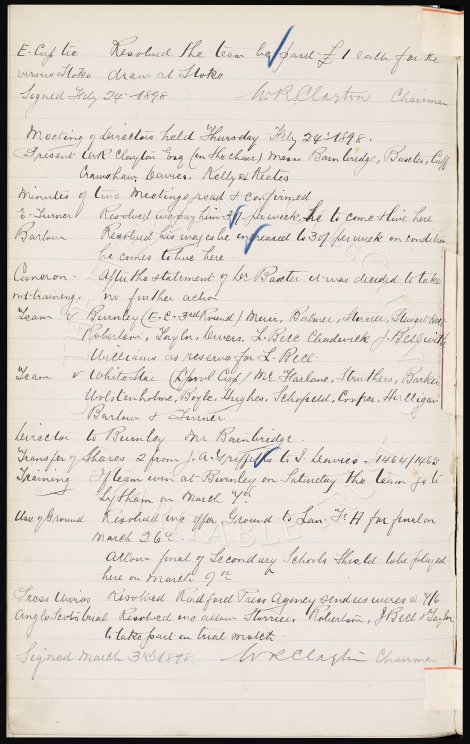 E. Cup tie Resolved the team be paid £1 each for the
versus Stoke draw at Stoke
Signed Feby 24th 1898 W.R. Clayton Chairman
Meeting of Directors held Thursday Feby 24th 1898.
Present W.R. Clayton Esq (in the chair) Messrs Bainbridge, Baxter, Cuff
Crawshaw, Davies, Kelly & Keates
Minutes of two Meetings read & confirmed
E. Turner Resolved we pay him per week, he to come & live here
Barlow Resolved his wages be increased to 30/ per week on condition
he comes to live here.
Cameron - After the statement of Dr Baxter it was decided to take
not training. no further action
Team v Burnley (E.C. 3rd Round) Muir, Balmer, Storrier, Stewart
Robertson, Taylor, Divers, L. Bell Chadwick J. Bell with
Williams as reserve for L. Bell
Team v White Star (Lpool Cup) McFarlane, Struthers, Barker
Wolstenholme, Boyle, Hughes, Schofield,
Barlow & Turner
Director to Burnley Mr Bainbridge.
Transfer of Shares 2 from J.A. Griffiths to D Davies. 1464/1465
Training If team win at Burnley on Saturday the team go to
Lytham on March 7th.
Use of Ground Resolved we offer Ground to Lan. F.A for final on
March 26th
Allow final of Secondary Schools Shield to be played
here on March 9th
Press Wires Resolved Radford Press Agency send us wires @ 7/6
Anglo Scots trial Resolved we allow Storrier, Robertson, J Bell & Taylor
to take part in trial match.
Signed March 3rd 1898 W R Clayton Chairman